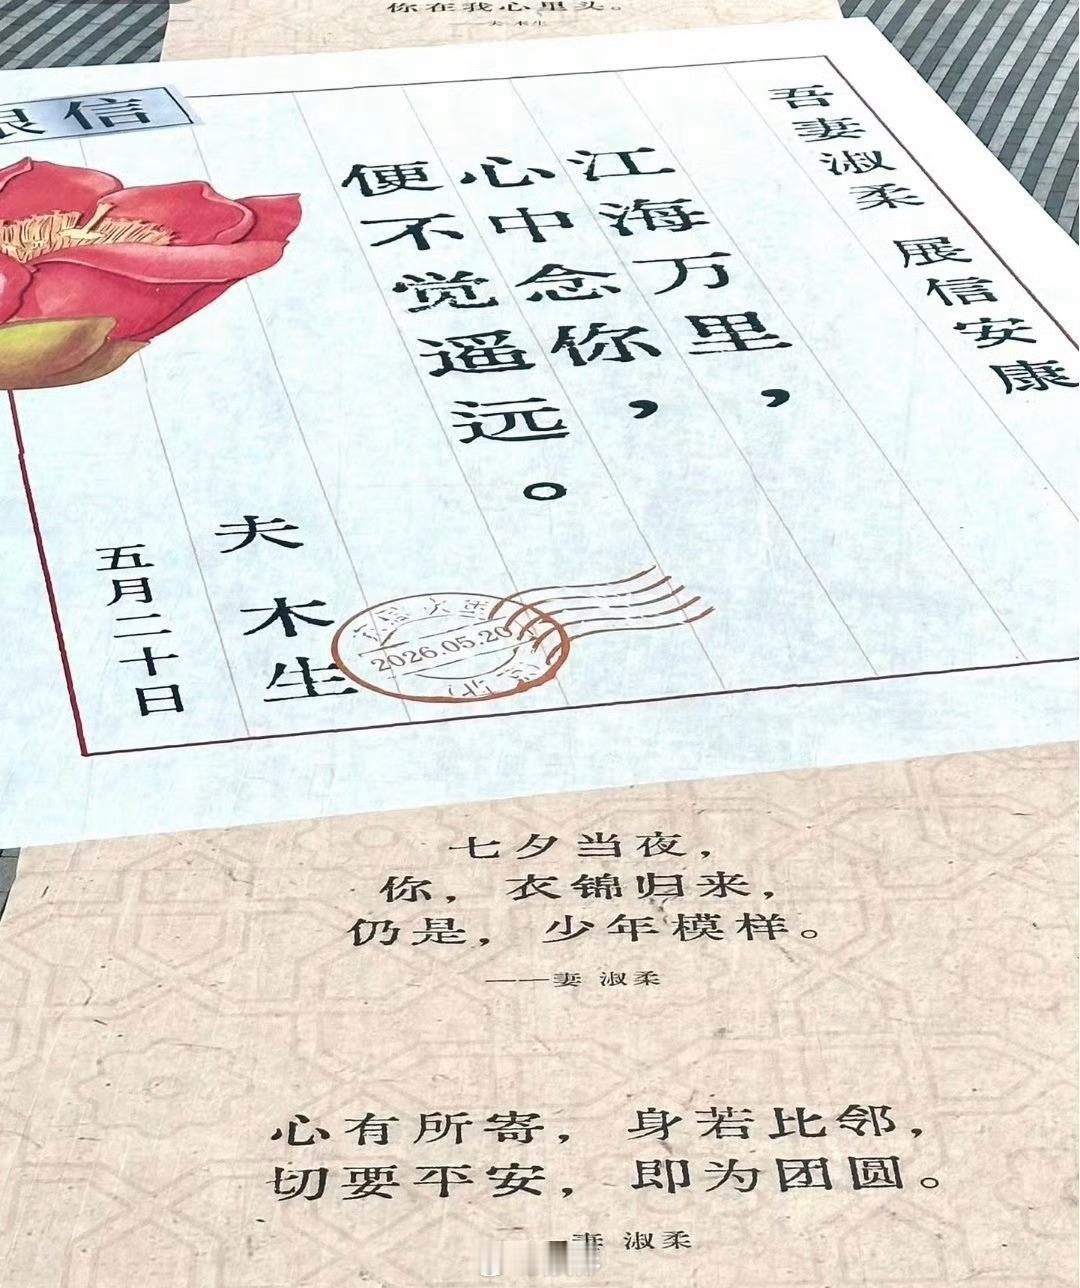 你在我心里头。
——夫 木生
银信
吾妻淑柔 展信安康
江海万里，
心中念你，
便不觉遥远。
夫 木生
五月二十日
2026.05.20
七夕当夜，
你，衣锦归来，
仍是，少年模样。
——妻 淑柔
心有所寄，身若比邻，
切要平安，即为团圆。
妻 淑柔